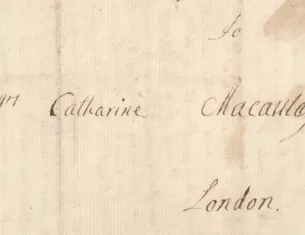 To
Catharine Macaulay
London.